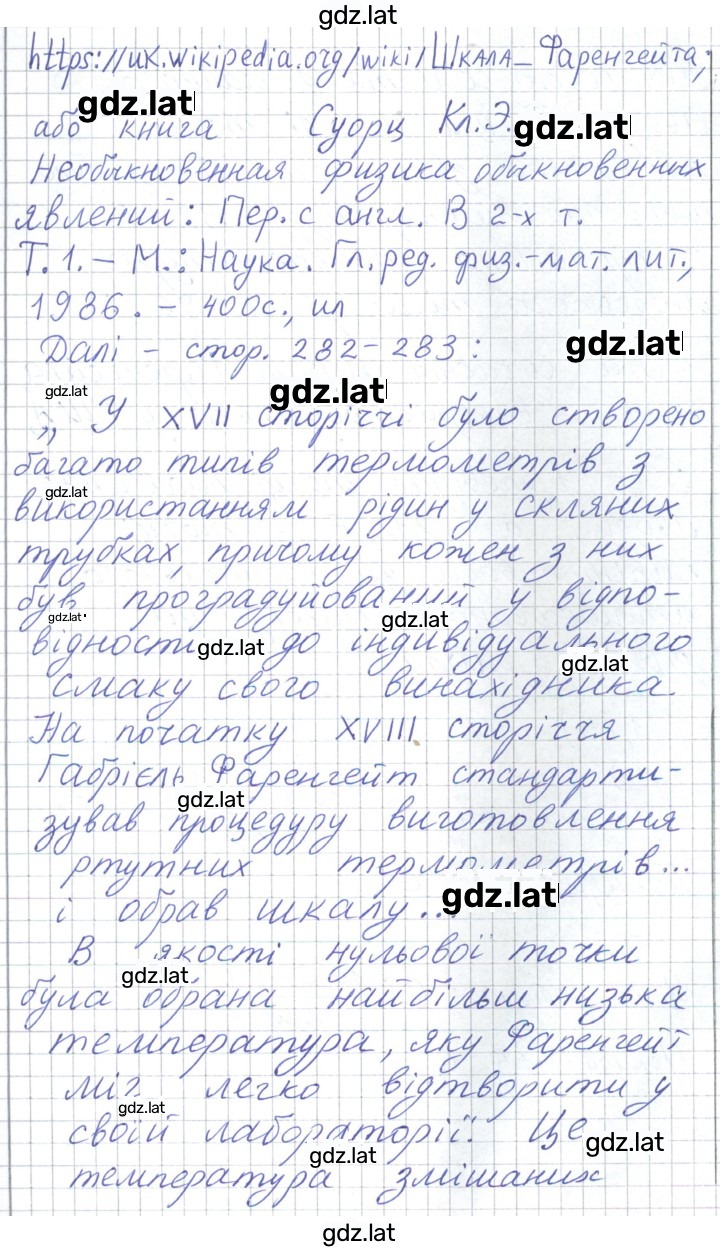 gdz.lat
https://uk.wikipedia.org/wiki/Шкала_Фаренгейта,
gdz.lat
або книга Суорц Кл.Э. gdz.lat
Необыкновенная физика обыкновенных
явлений: Пер. с англ. В 2-х т.
Т. 1. – М.: Наука. Гл. ред. физ.-мат. лит.,
1986. – 400с., ил
Далі – стор. 282–283: gdz.lat
gdz.lat gdz.lat
„ У XVII сторіччі було створено
багато типів термометрів з
gdz.lat
використанням рідин у скляних
трубках, причому кожен з них
був проградуйований у відпо-
gdz.lat gdz.lat
відності gdz.lat до індивідуального
gdz.lat
смаку свого винахідника.
На початку XVIII сторіччя
Габрієль Фаренгейт стандарти-
gdz.lat
зував процедуру виготовлення
ртутних термометрів...
і обрав шкалу... gdz.lat
В якості нульової точки
gdz.lat
була обрана найбільш низька
температура, яку Фаренгейт
міг легко відтворити у
gdz.lat
своїй лабораторії. Це gdz.lat
gdz.lat
температура змішаних
gdz.lat